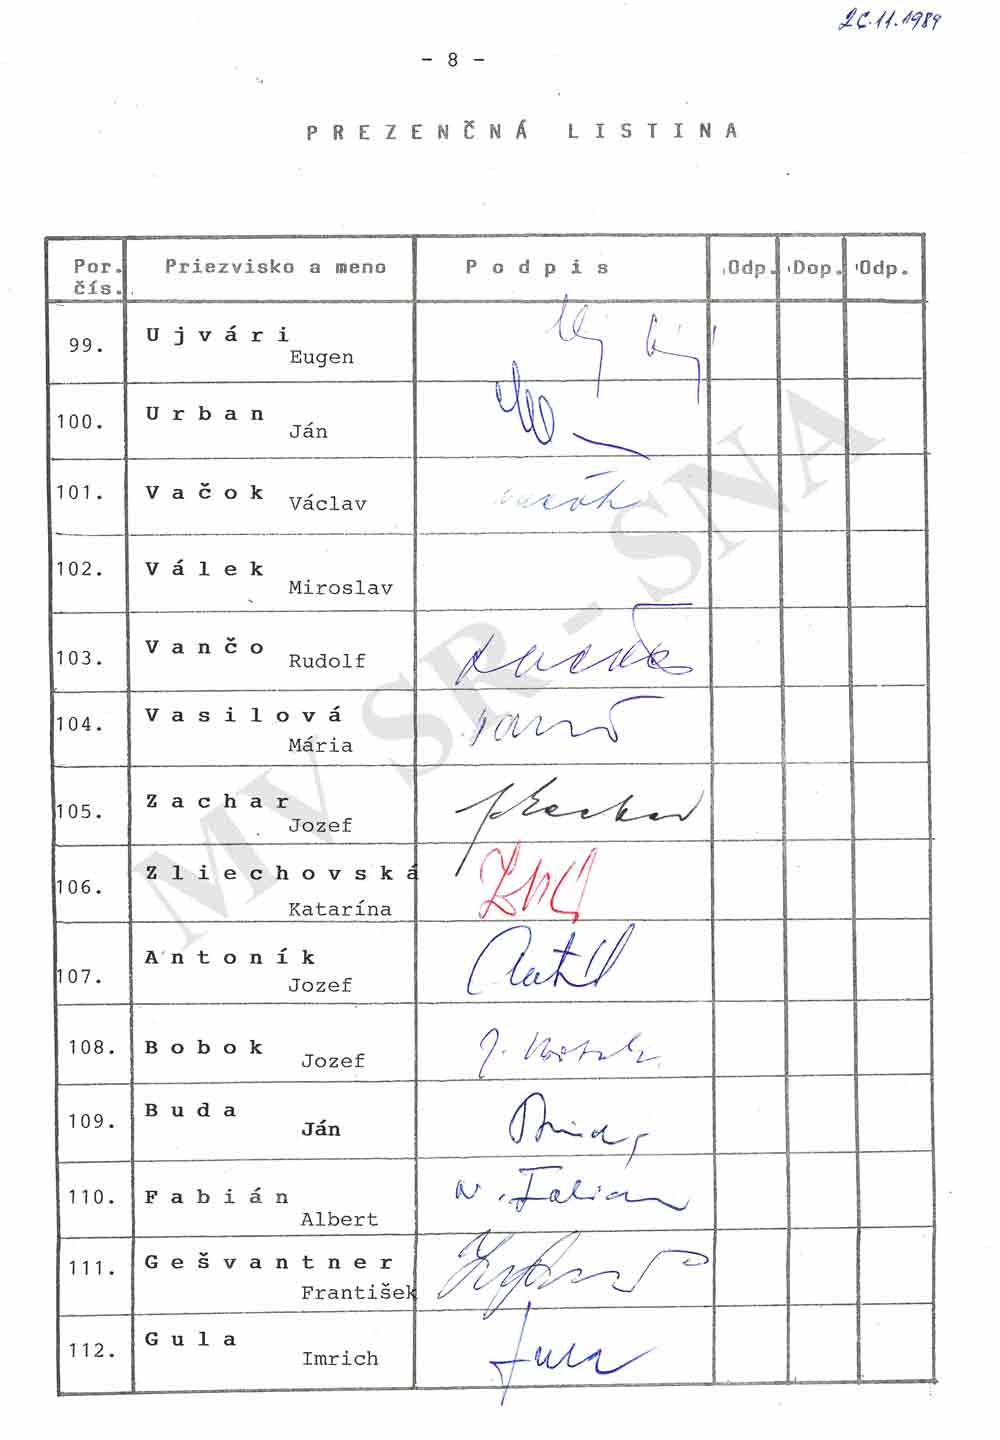 26.11.1989
- 8 -
PREZENČNÁ LISTINA
Por. čís. Priezvisko a meno Podpis Odp. Dop. Odp.
99. Ujvári
Eugen
100. Urban
Ján
101. Vačok Václav
102. Válek
Miroslav
103. Vančo
Rudolf
104. Vasilová
Mária
105. Zachar
Jozef
106. Zliechovská
Katarína
107. Antoník
Jozef
108. Bobok
Jozef
109. Buda
Ján
110. Fabián
Albert
111. Gešvantner
František
112. Gula
Imrich
MV SR - SNA